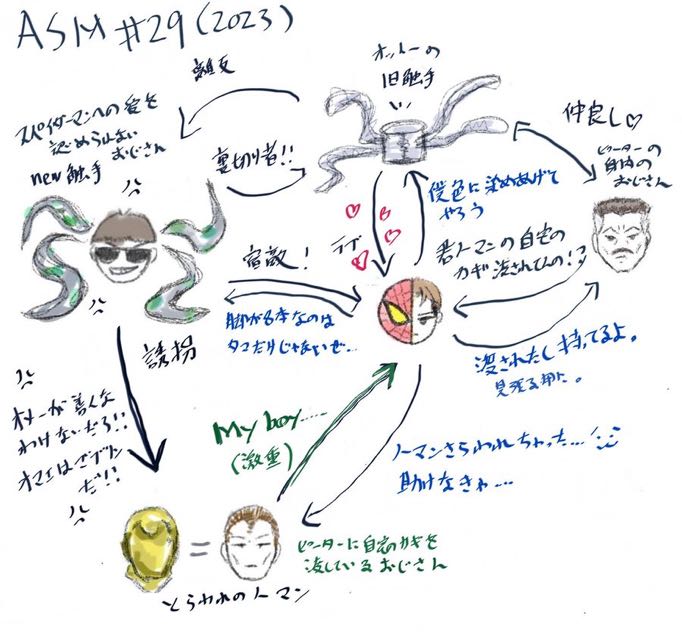 ASM #29 (2023)
離反
オットーの
旧触手
スパイダーマンへの愛を
認められない
おじさん
new触手
裏切り者!!
仲良し♡
ピーターの
自称の
おじさん
俺色に染めあげて
やろう
ラブ
宿敵!
若ノーマンの自宅の
カギ渡されてんの!?
脚が8本なのは
タコだけじゃないぜ…
誘拐
渡されたし持ってるよ。
見張る用に。
オメーが善人な
わけないだろ!!
オマエはゴブリン
だ!!
My boy.....
(激重)
ノーマンさらわれちゃった…
助けなきゃ…
=
ピーターに自宅のカギを
渡しているおじさん
とらわれのノーマン